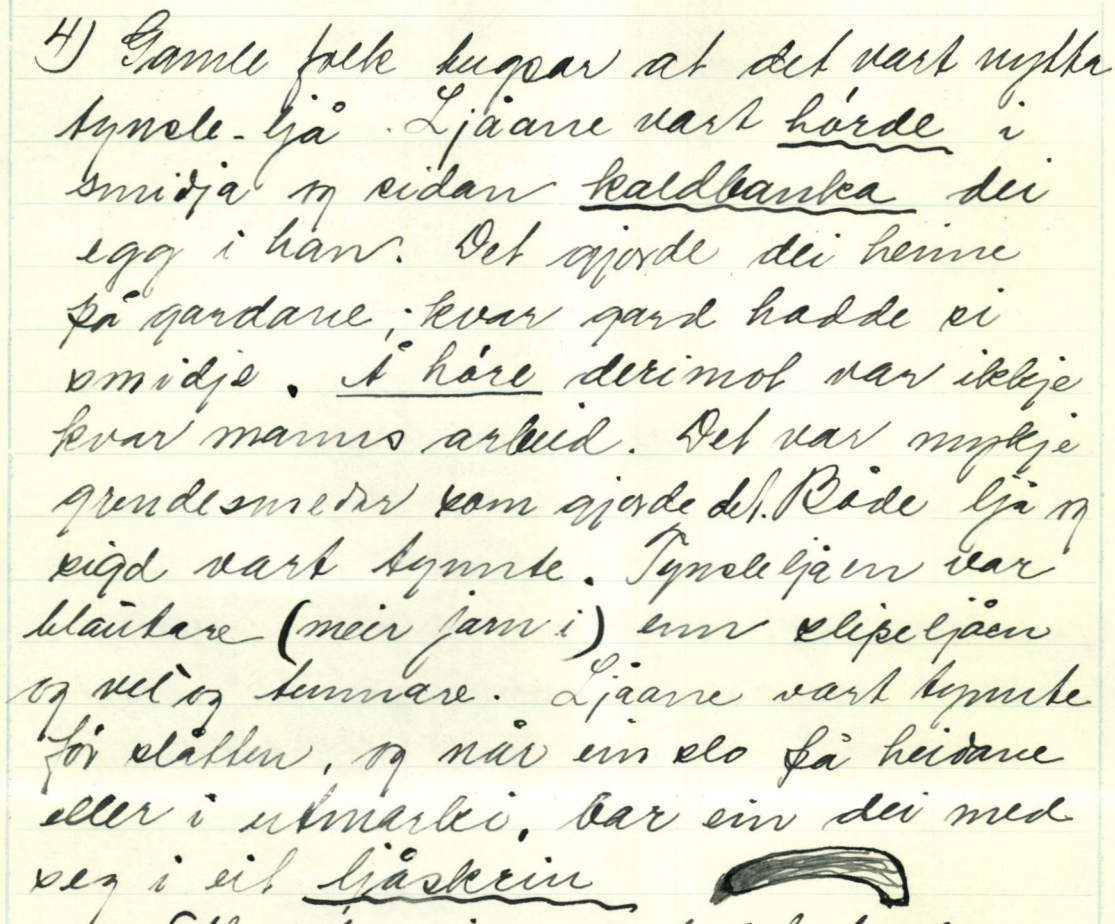 4) Gamle folk hugsar at det vart nytta
tynsle-ljå. Ljåane vart hørde i
smidja og sidan kaldbanka dei
egg i han. Det gjorde dei heime
på gardane; kvar gard hadde si
smidje. Å høre derimot var ikkje
kvar manns arbeid. Det var mykje
grendesmedar som gjorde det. Både ljå og
sigd vart tynnte. Tynsleljåen var
blautare (meir jarn i) enn slipeljåen
og vel og tunnare. Ljåane vart tynnte
før slåtten, og når ein slo på heidane
eller i utmarki, bar ein dei med
seg i eit ljåskrin